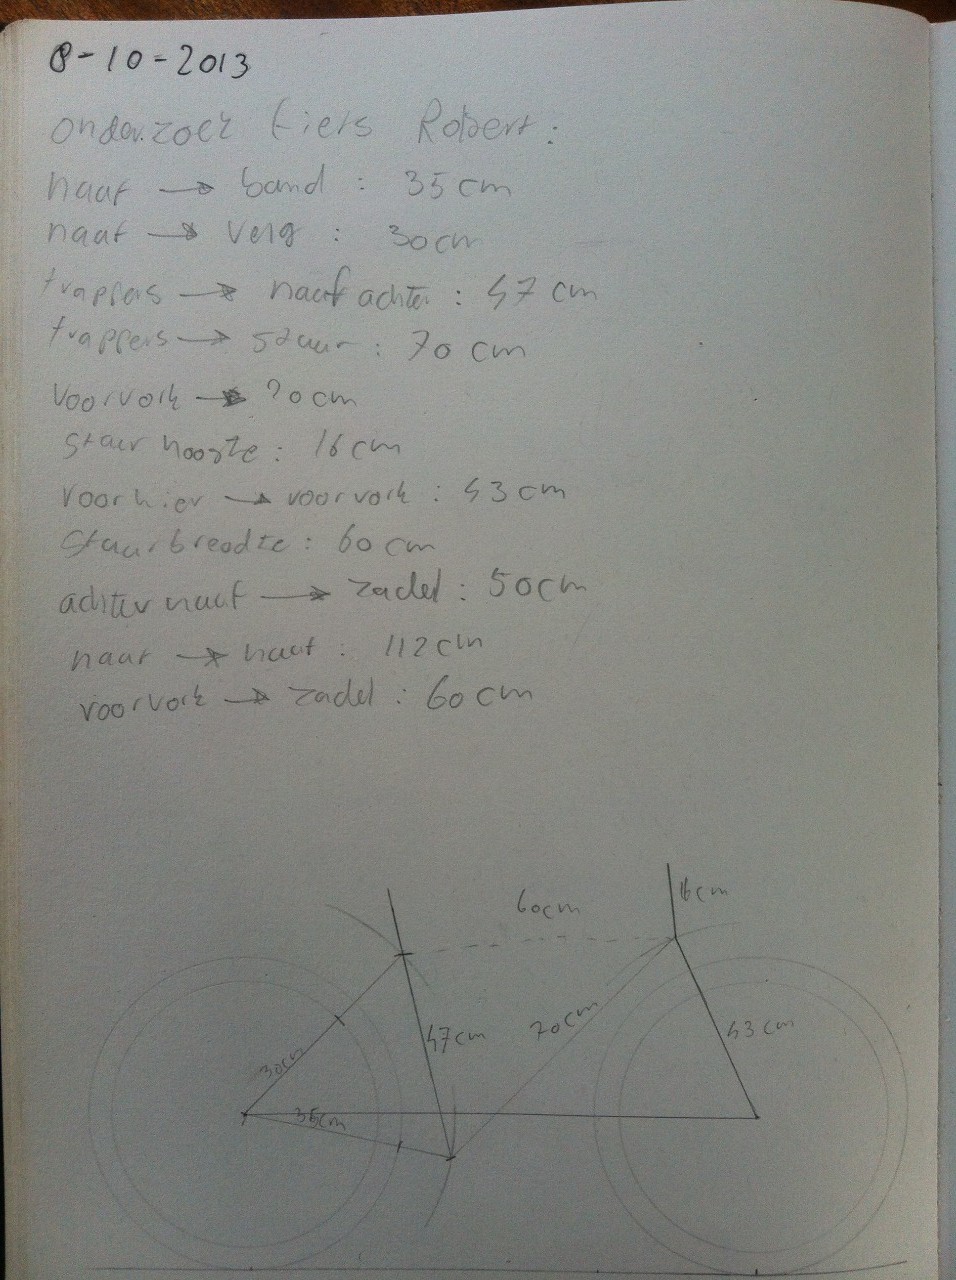 8-10-2013
onderzoek fiets Robert:
naaf → band : 35 cm
naaf → velg : 30cm
trappers → naaf achter : 47 cm
trappers → stuur : 70 cm
voorvork → 20cm
stuur hoogte : 16cm
voorhier → voorvork : 43cm
stuurbreedte : 60 cm
achter naaf → zadel : 50cm
naaf → naaf : 112cm
voorvork → zadel : 60cm
16cm
60cm
47cm
70cm
43cm
30cm
35cm